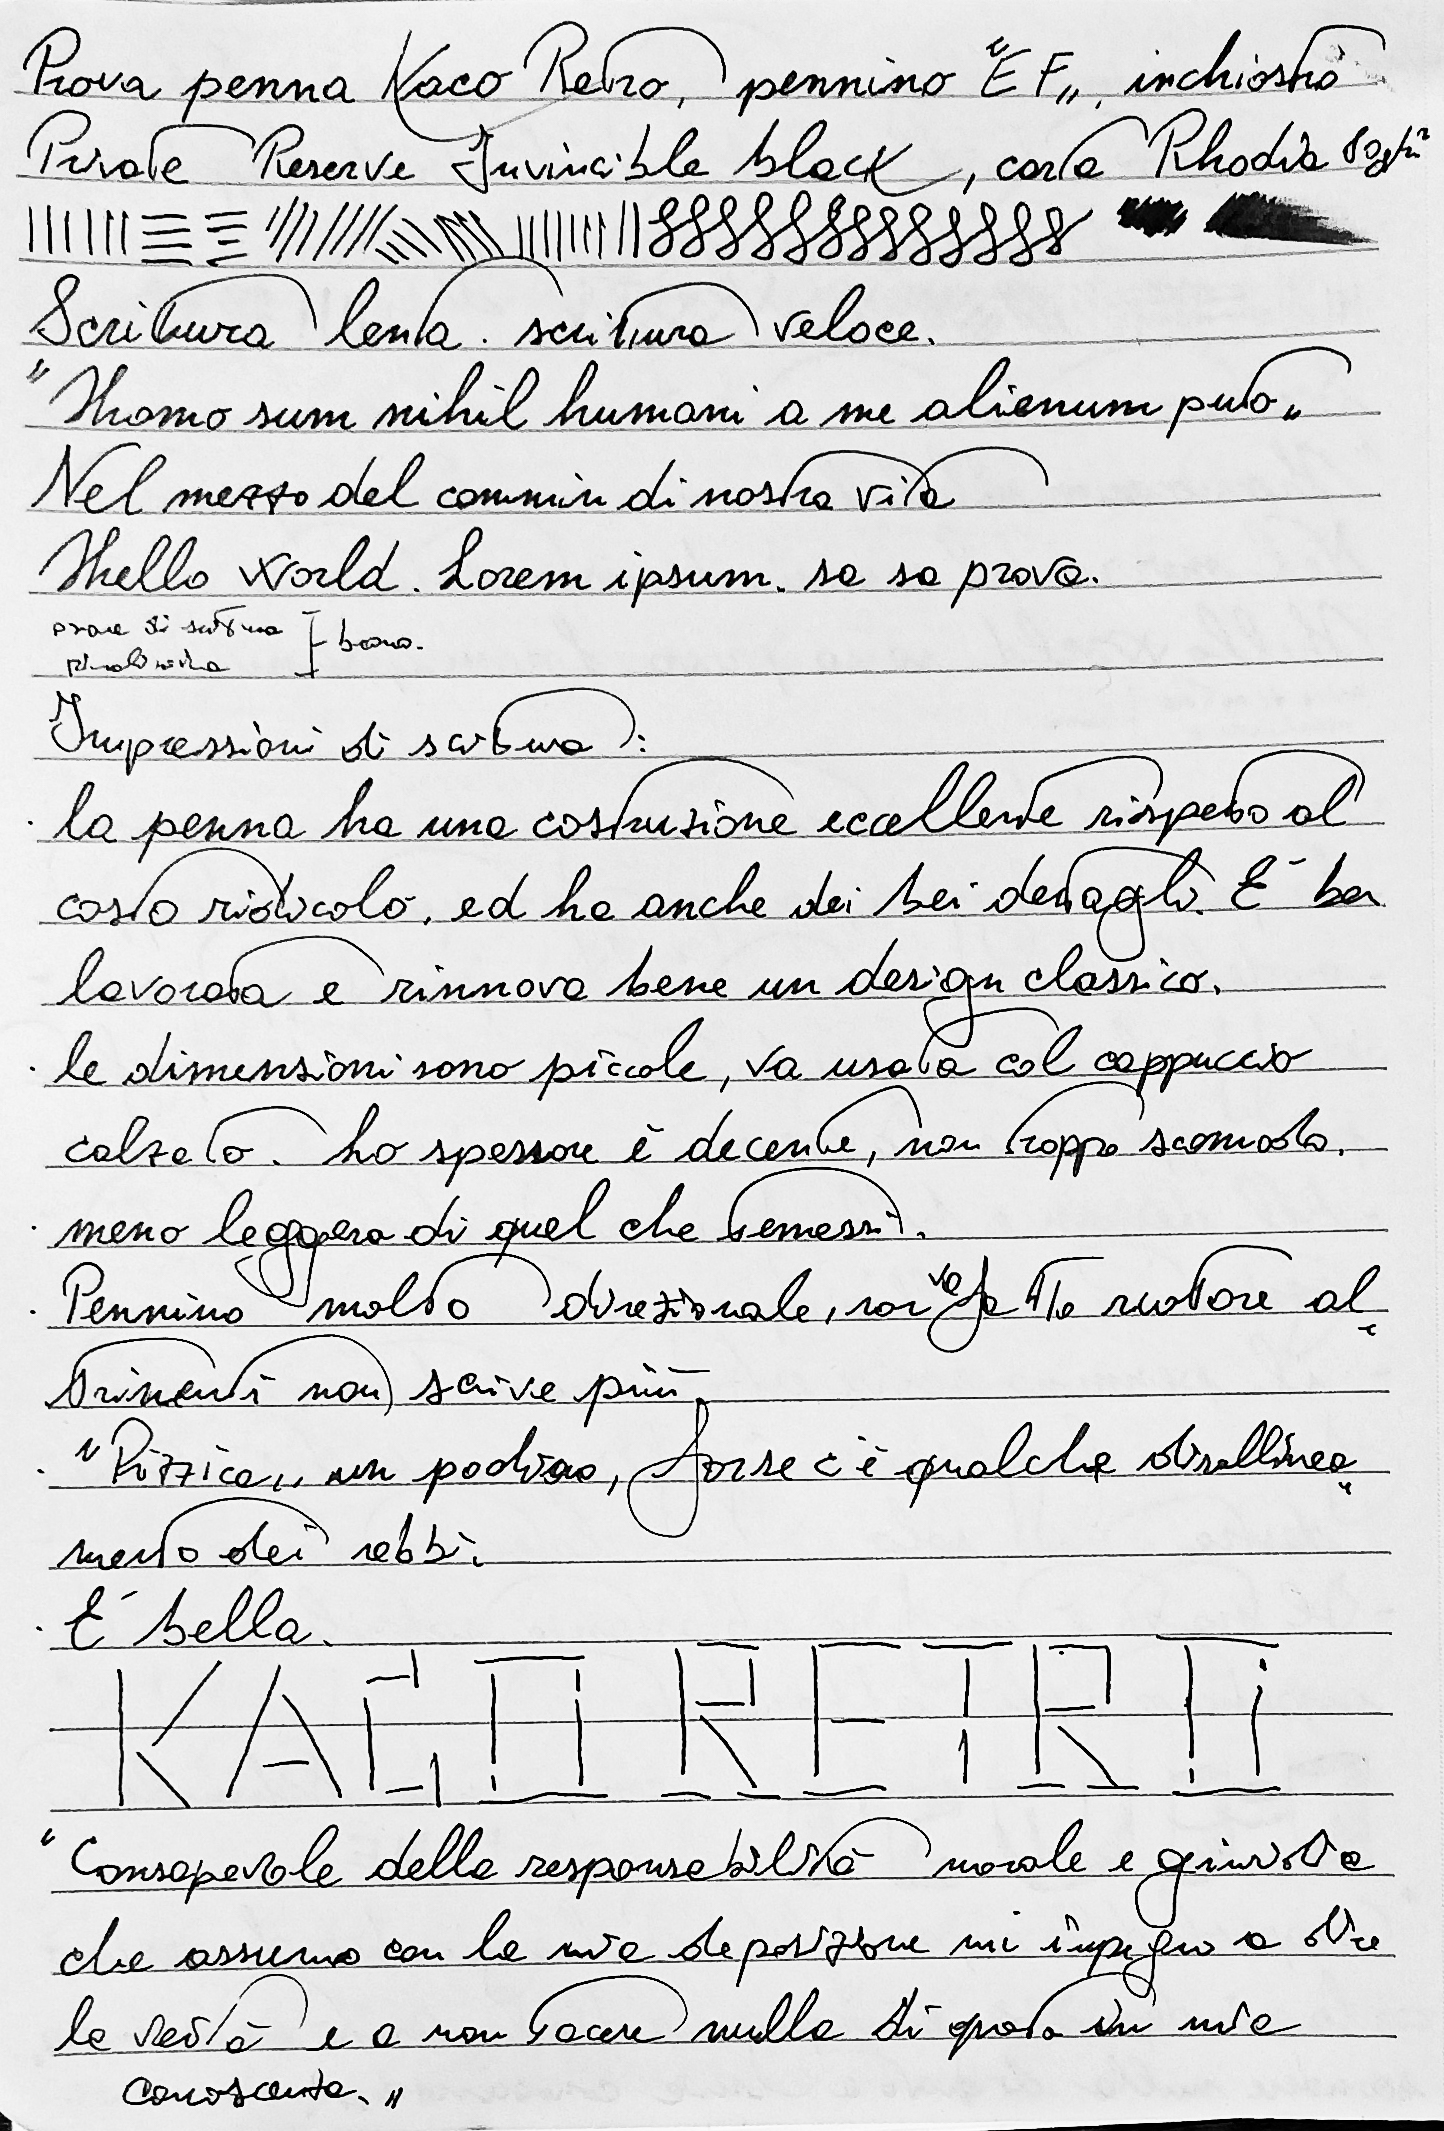 Prova penna Kaco Retro, pennino "EF", inchiostro
Private Reserve Invincible black, carta Rhodia
Scrittura lenta. scrittura veloce.
"Homo sum nihil humani a me alienum puto"
Nel mezzo del cammin di nostra vita
Hello World. Lorem ipsum. sa sa prova.
prove di scrittura
piccolina buona.
Impressioni di scrittura:
· la penna ha una costruzione eccellente rispetto al
costo ridicolo, ed ha anche dei bei dettagli. E' ben
lavorata e rinnova bene un design classico.
· le dimensioni sono piccole, va usata col cappuccio
calzato. Lo spessore è decente, non troppo scomodo.
· meno leggera di quel che temessi.
· Pennino molto direzionale, non va fatto ruotare al-
trimenti non scrive più.
· "Pizzica" un pochino, forse c'è qualche disallinea-
mento dei rebbi.
· E' bella.
KACO RETRO
"Consapevole della responsabilità morale e giuridica
che assumo con la mia deposizione mi impegno a dire
la verità e a non tacere nulla di quanto in mia
conoscenza."